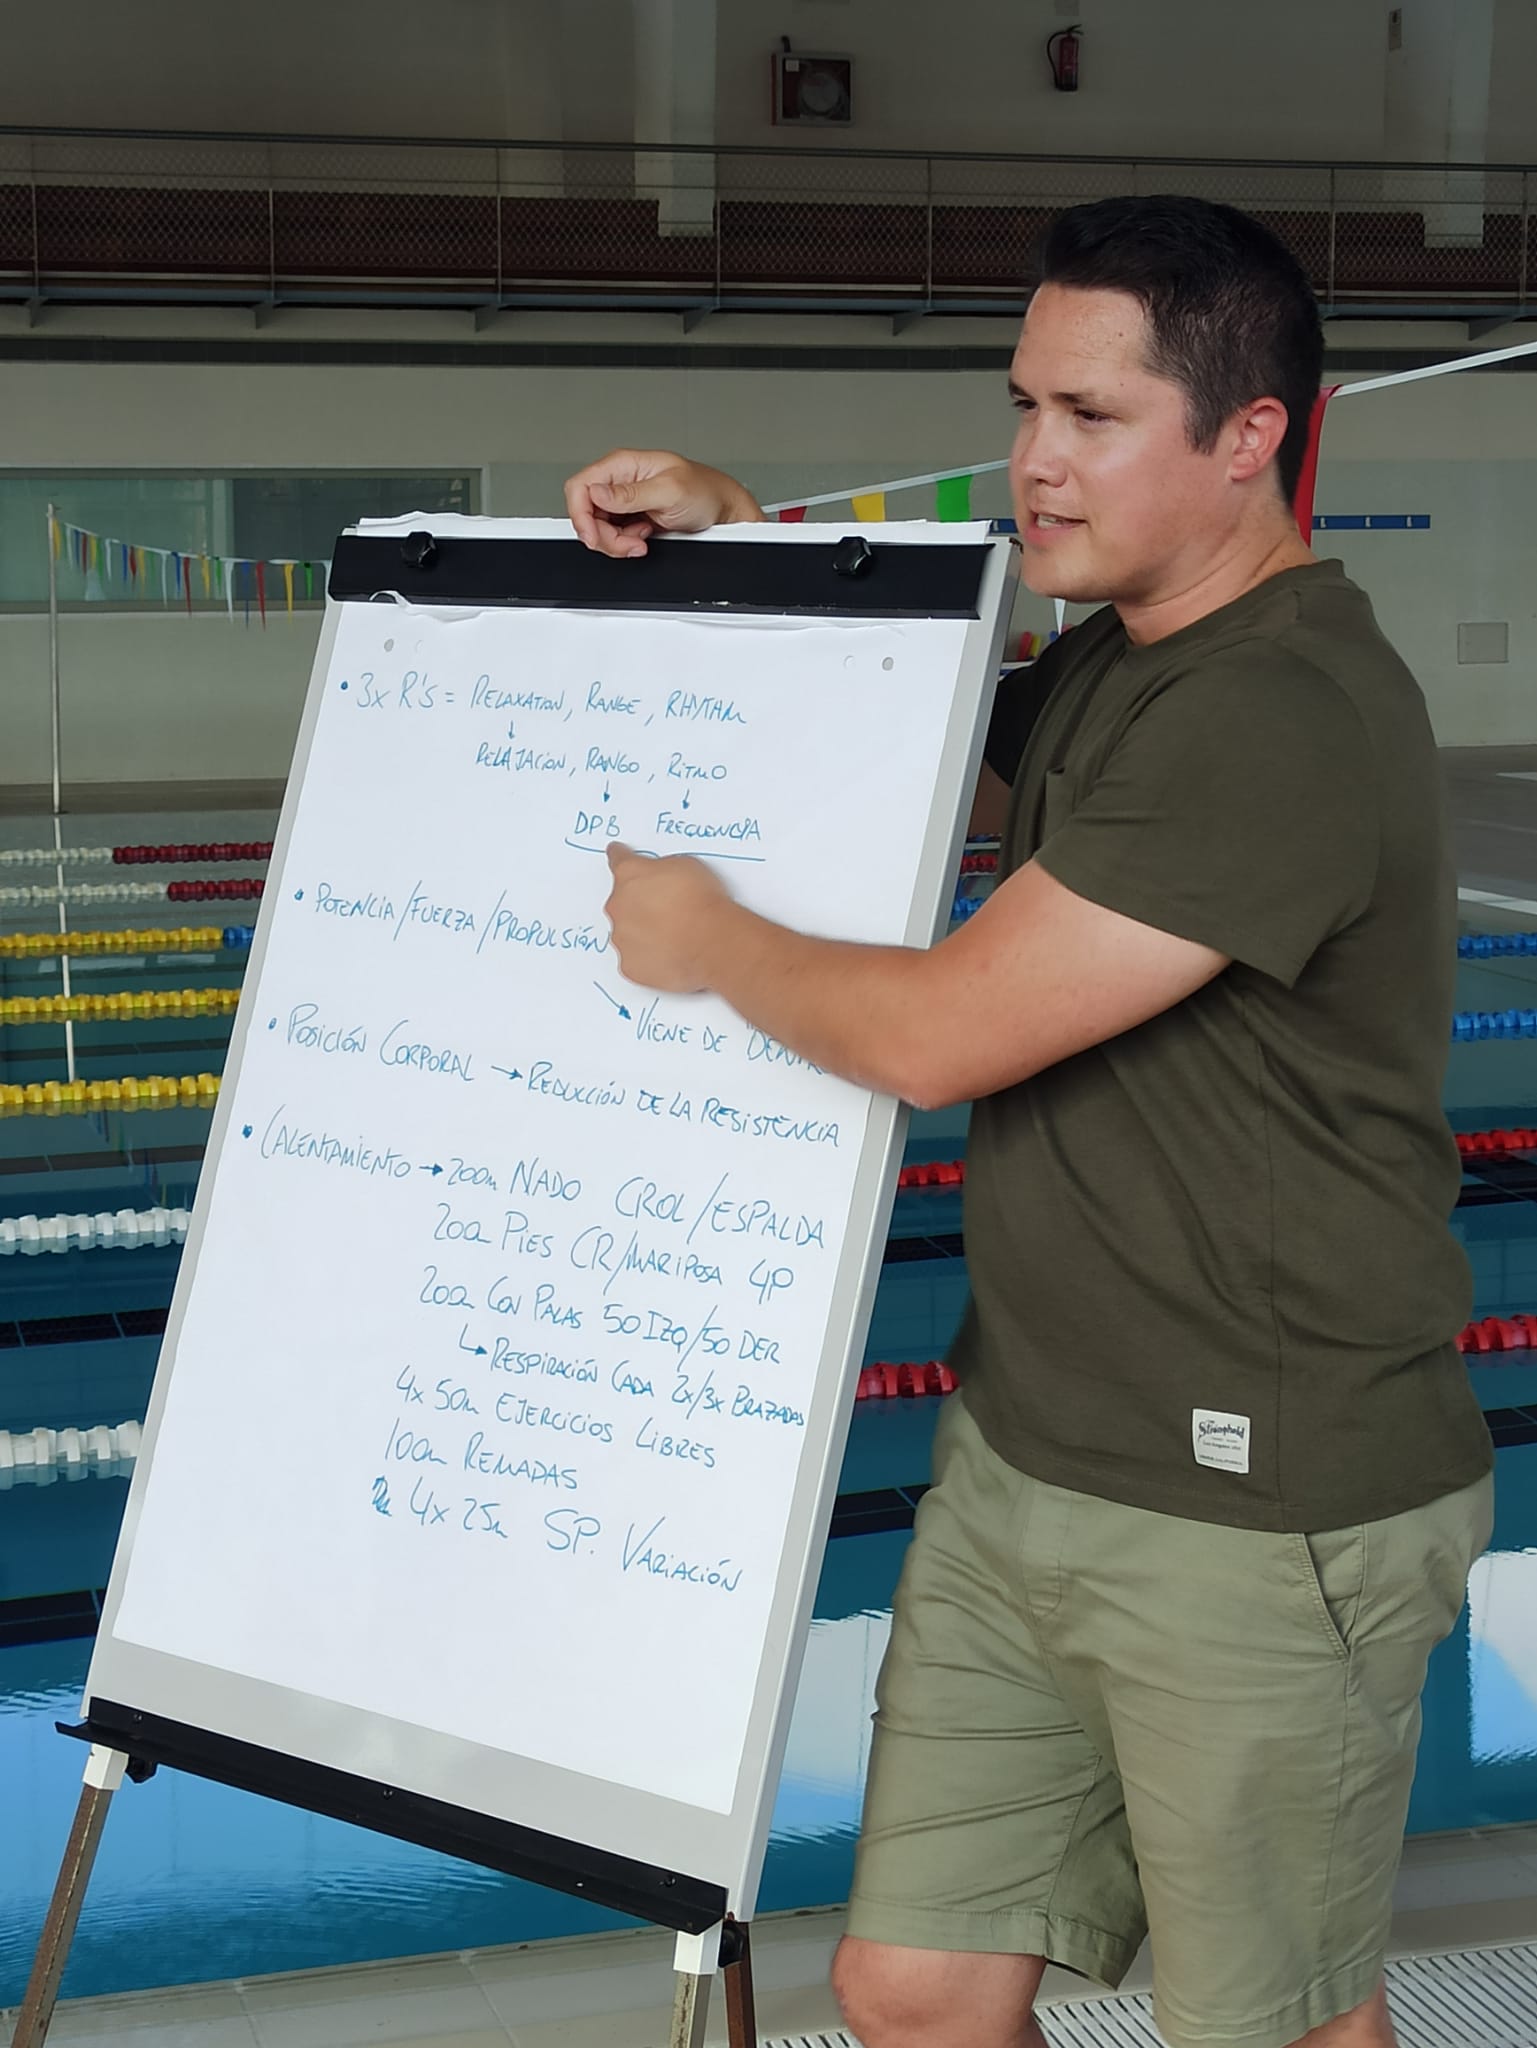 • 3x R's = RELAXATION, RANGE, RHYTHM
↓
RELAJACIÓN, RANGO, RITMO
↓ ↓
DPB FRECUENCIA
• POTENCIA/FUERZA/PROPULSIÓN
→ VIENE DE
• POSICIÓN CORPORAL → REDUCCIÓN DE LA RESISTENCIA
• CALENTAMIENTO → 200m NADO CROL/ESPALDA
200m PIES CR/MARIPOSA 4P
200m CON PALAS 50 IZQ/50 DER
↳ RESPIRACIÓN CADA 2x/3x BRAZADAS
4x 50m EJERCICIOS LIBRES
100m REMADAS
4x 25m SP. VARIACIÓN
Stronghold